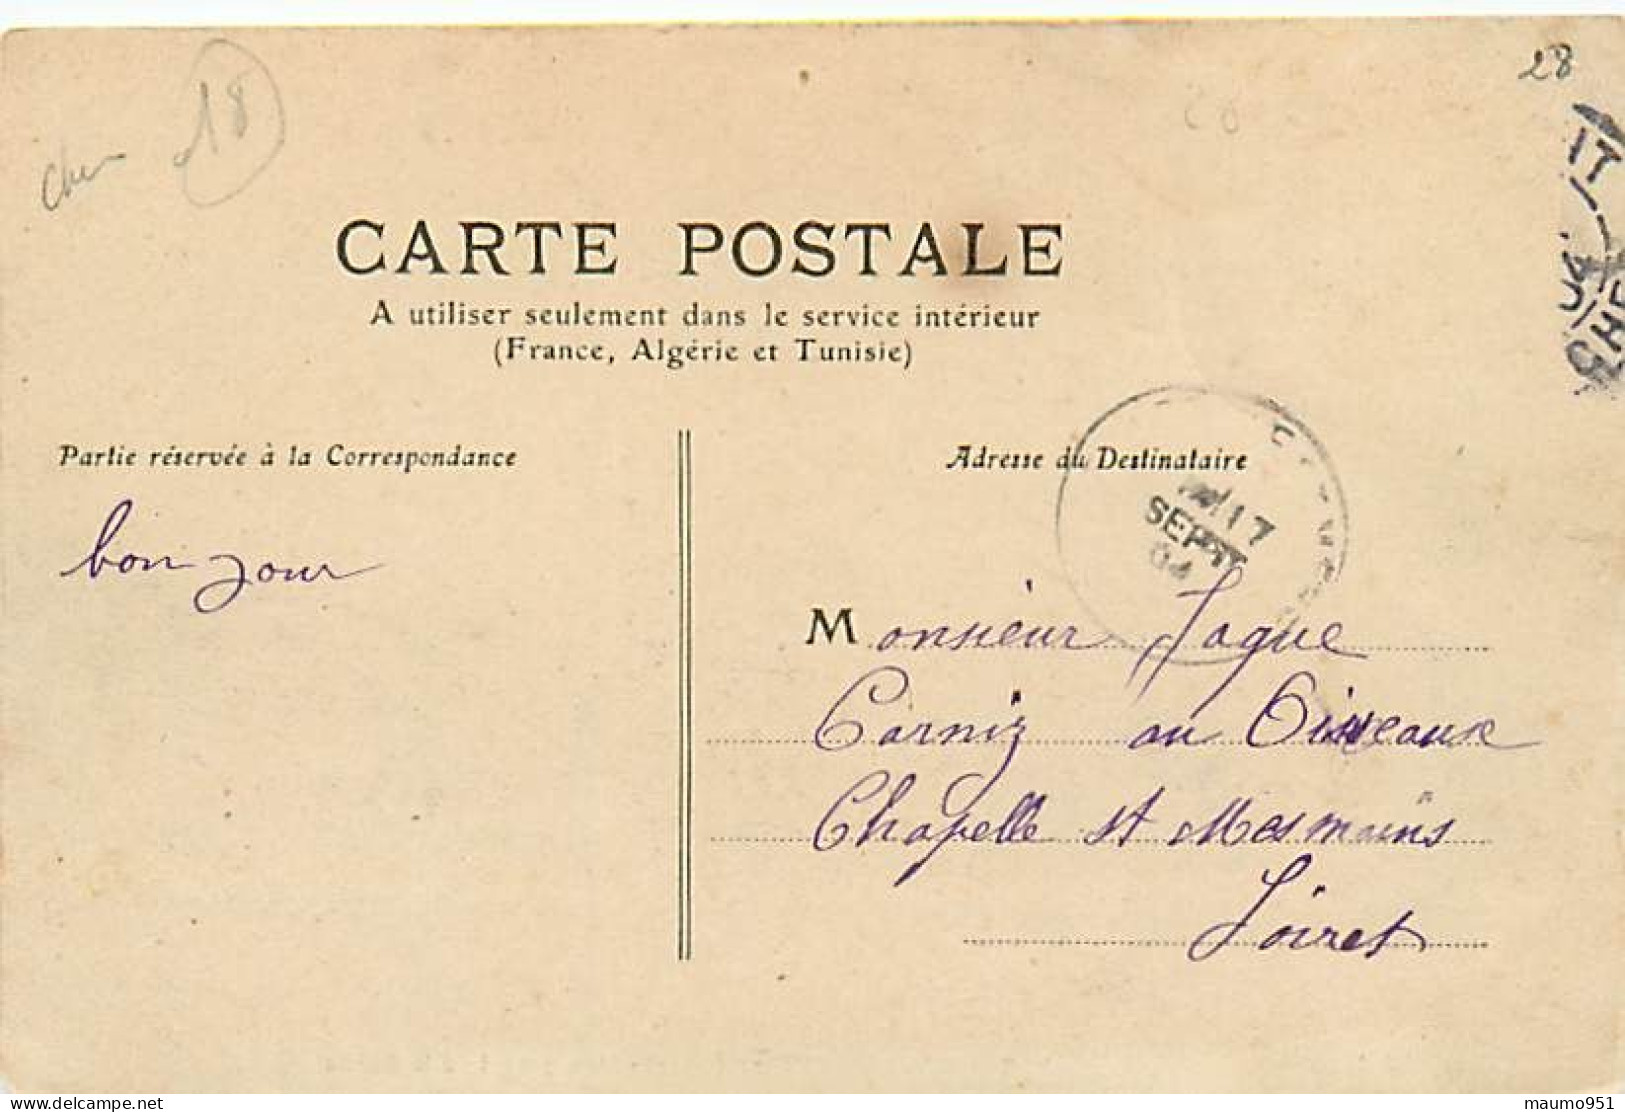 28
Cher 18
17
CARTE POSTALE
A utiliser seulement dans le service intérieur
(France, Algérie et Tunisie)
Partie réservée à la Correspondance
Adresse du Destinataire
17
SEPT
04
bon jour
Monsieur Jaque
Carniz au Oiseaux
Chapelle St Mesmains
Loiret
www.delcampe.net
maumo951